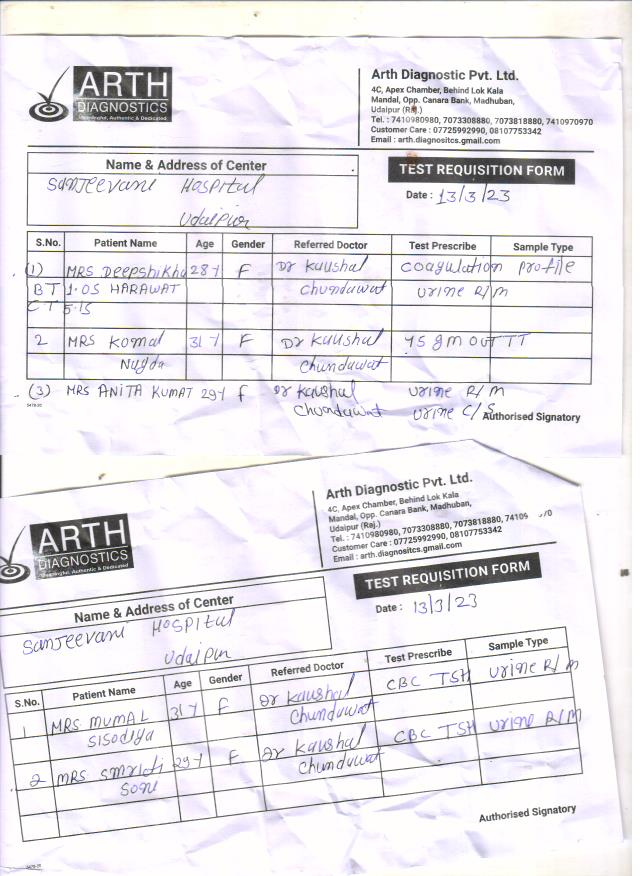 ARTH
DIAGNOSTICS
Meaningful, Authentic & Dedicated
Arth Diagnostic Pvt. Ltd.
4C, Apex Chamber, Behind Lok Kala
Mandal, Opp. Canara Bank, Madhuban,
Udaipur (Raj.)
Tel. : 7410980980, 7073308880, 7073818880, 7410970970
Customer Care : 07725992990, 08107753342
Email : arth.diagnositcs.gmail.com
Name & Address of Center
TEST REQUISITION FORM
Sanjeevani Hospital
Udaipur
Date : 13/3/23
S.No. Patient Name Age Gender Referred Doctor Test Prescribe Sample Type
(1) MRS Deepshikha 28y F Dr Kaushal Coagulation profile
BT 1.05 HARAWAT Chundawat urine R/M
CT 5.15
2 MRS Komal 31y F Dr Kaushal 75 gm OGTT
Chundawat
(3) MRS ANITA KUMAT 29y F Dr Kaushal urine R/M
Chundawat urine C/S
Authorised Signatory
ARTH
DIAGNOSTICS
Meaningful, Authentic & Dedicated
Arth Diagnostic Pvt. Ltd.
4C, Apex Chamber, Behind Lok Kala
Mandal, Opp. Canara Bank, Madhuban,
Udaipur (Raj.)
Tel. : 7410980980, 7073308880, 7073818880, 74109
Customer Care : 07725992990, 08107753342
Email : arth.diagnositcs.gmail.com
Name & Address of Center
TEST REQUISITION FORM
Sanjeevani Hospital
Udaipur
Date : 13/3/23
S.No. Patient Name Age Gender Referred Doctor Test Prescribe Sample Type
1 MRS MUMAL 31y F Dr Kaushal CBC TSH urine R/M
Sisodiya Chundawat
2 MRS Smriti 29y F Dr Kaushal CBC TSH urine R/M
Soni Chundawat
Authorised Signatory